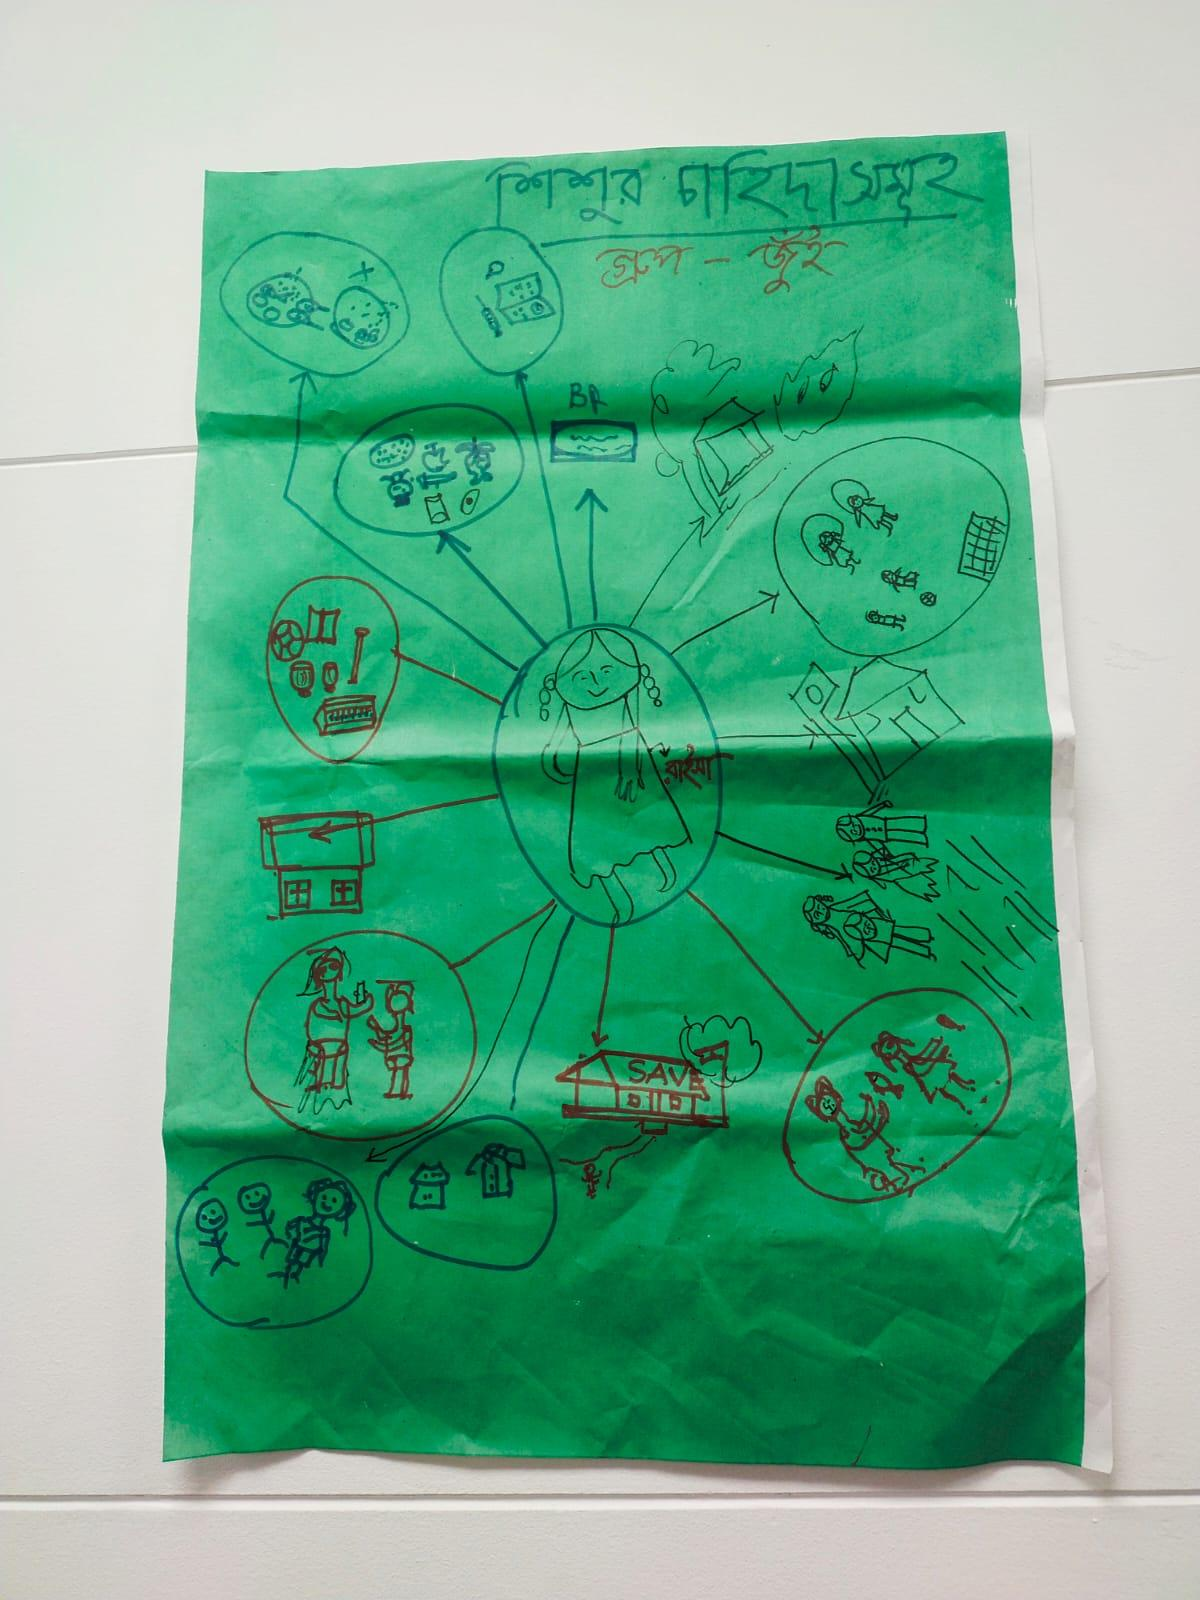 শিশুর চাহিদাসমূহ
গ্রুপ - জুঁই
BR
রাইসা
SAVE